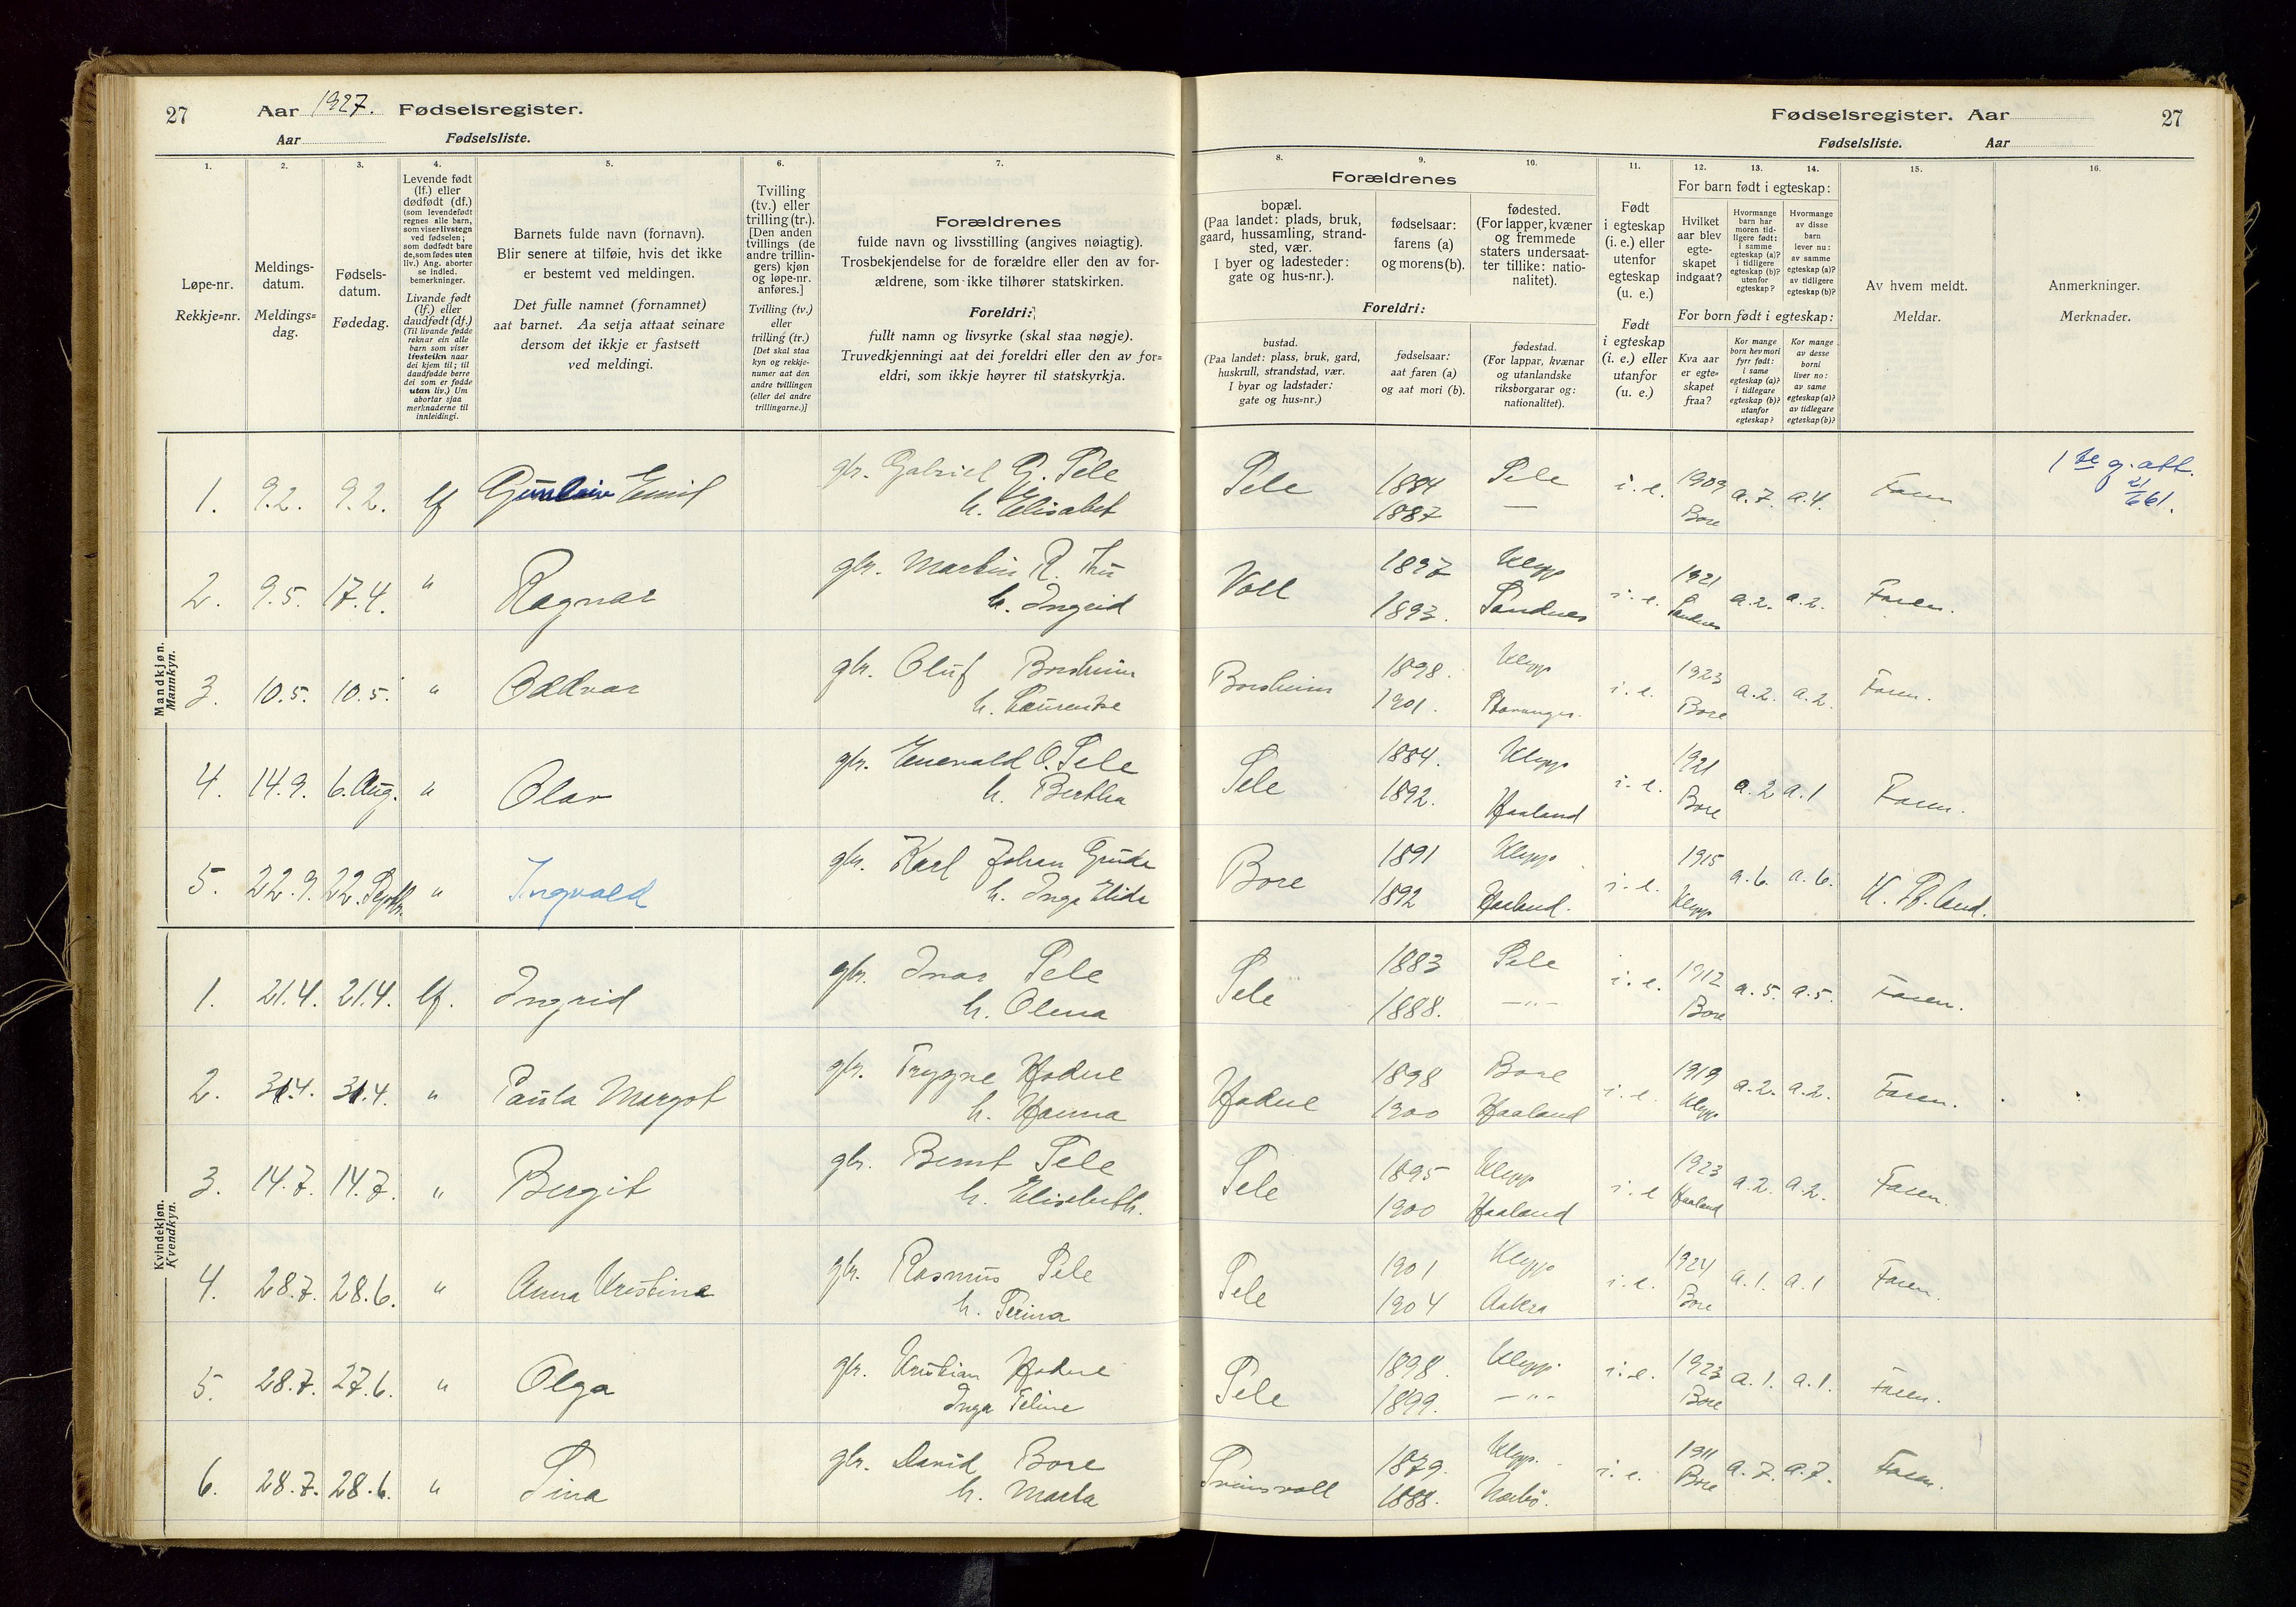 27 Aar 1927. Fødselsregister.
Aar Fødselsliste.
1. 2. 3. 4. 5. 6. 7.
Løpe-nr.
Rekkje=nr.
Meldings-
datum.
Meldings=
dag.
Fødsels-
datum.
Fødedag.
Levende født
(lf.) eller
dødfødt (df.)
(som levendefødt
regnes alle barn,
som viser livstegn
ved fødselen;
som dødfødt bare
de, som fødes uten
liv.) Ang. aborter
se indled.
bemerkninger.
Livande født
(lf.) eller
daudfødt (df.)
(Til livande fødde
reknar ein alle
barn som viser
livsteikn naar
dei kjem til; til
daudfødde berre
dei som er fødde
utan liv.) Um
abortar sjaa
merknaderne til
innleidingi.
Barnets fulde navn (fornavn).
Blir senere at tilføie, hvis det ikke
er bestemt ved meldingen.
Det fulle namnet (fornamnet)
aat barnet. Aa setja attaat seinare
dersom det ikkje er fastsett
ved meldingi.
Tvilling
(tv.) eller
trilling (tr.).
[Den anden
tvillings (de
andre trillin-
gers) kjøn
og løpe-nr.
anføres.]
Tvilling (tv.)
eller
trilling (tr.)
[Det skal staa
kyn og rekkje-
numer aat den
andre tvillingen
(eller dei andre
trillingarne.)]
Forældrenes
fulde navn og livsstilling (angives nøiagtig).
Trosbekjendelse for de forældre eller den av for-
ældrene, som ikke tilhører statskirken.
Foreldri:
fullt namn og livsyrke (skal staa nøgje).
Truvedkjenningi aat dei foreldri eller den av for=
eldri, som ikkje høyrer til statskyrkja.
Mandkjøn.
Mannkyn.
1. 9.2. 9.2. lf Gunleiv Emil gbr. Gabriel G. Sele
h. Elisabet
2. 9.5. 17.4. " Ragnar gbr. Martin R. Thu
h. Ingrid
3. 10.5. 10.5. " Oddvar gbr. Oluf Borsheim
h. Laurentse
4. 14.9. 6. Aug. " Olav gbr. Enevald O. Sele
h. Bertha
5. 22.9. 22. Septbr. " Ingvald gbr. Karl Johan Grude
h. Inga Elida
Kvindekjøn.
Kvendkyn.
1. 21.4. 21.4. lf. Ingrid gbr. Ivar Sele
h. Olena
2. 31.4. 31.4. " Paula Margot gbr. Trygve Hodne
h. Hanna
3. 14.7. 14.7. " Bergit gbr. Bernt Sele
h. Elisabeth.
4. 28.7. 28.6. " Anna Kristine gbr. Rasmus Sele
h. Serina
5. 28.7. 27.6. " Olga gbr. Kristian Hodne
Inga Teline
6. 28.7. 28.6. " Sina gbr. David Bore
h. Marta
Fødselsregister. Aar 27
Fødselsliste. Aar
8. 9. 10. 11. 12. 13. 14. 15. 16.
Forældrenes
bopæl.
(Paa landet: plads, bruk,
gaard, hussamling, strand-
sted, vær.
I byer og ladesteder:
gate og hus-nr.).
fødselsaar:
farens (a)
og morens (b).
fødested.
(For lapper, kvæner
og fremmede
staters undersaat-
ter tillike: natio-
nalitet).
Foreldri:
bustad.
(Paa landet: plass, bruk, gard,
huskrull, strandstad, vær.
I byar og ladstader:
gate og hus=nr.)
fødselsaar:
aat faren (a)
og aat mori (b).
fødestad.
(For lappar, kvænar
og utanlandske
riksborgarar og:
nationalitet).
Født
i egteskap
(i. e.) eller
utenfor
egteskap
(u. e.)
Født
i egteskap
(i. e.) eller
utanfor
(u. e.)
For barn født i egteskap:
Hvilket
aar blev
egte-
skapet
indgaat?
Hvormange
barn har
moren tid-
ligere født:
i samme
egteskap (a)?
i tidligere
egteskap (b)?
utenfor
egteskap?
Hvormange
av disse
barn
lever nu:
av samme
egteskap (a)?
av tidligere
egteskap (b)?
For born født i egteskap:
Kva aar
er egte=
skapet
fraa?
Kor mange
born hev mori
fyrr født:
i same
egteskap (a)?
i tidlegare
egteskap (b)?
utanfor
egteskap?
Kor mange
av desse
borni
liver no:
av same
egteskap (a)?
av tidlegare
egteskap (b)?
Av hvem meldt.
Meldar.
Anmerkninger.
Merknader.
Sele 1884 Sele i. e. 1909 a. 7. a. 4. Faren 1ste g. att.
1887 — Bore 21/6 61.
Voll 1897 Klepp i. e. 1921 a. 2. a. 2. Faren.
1893. Sandnes Sandnes
Borsheim 1898. Klepp i. e. 1923 a. 2. a. 2. Faren.
1901. Stavanger. Bore
Sele 1884. Klepp i. e. 1921 a. 2 a. 1 Faren.
1892. Haaland Bore
Bore 1891 Klepp i. e. 1915 a. 6. a. 6.
1892 Haaland. Klepp
Sele 1883 Sele i. e. 1912 a. 5. a. 5. Faren.
1888. —"— Bore
Hodne 1898 Bore i. e. 1919 a. 2. a. 2. Faren.
1900 Haaland Klepp
Sele 1895 Klepp i. e 1923 a. 2. a. 2. Faren.
1900 Haaland Haaland
Sele 1901 Klepp i. e. 1924 a. 1. a. 1 Faren.
1904 Aakra Bore
Sele 1898. Klepp. i. e. 1923 a. 1. a. 1. Faren.
1899. —"— Bore
1879. Klepp. i. e. 1911 a. 7. a. 7. Faren.
1888. Nærbø. Bore